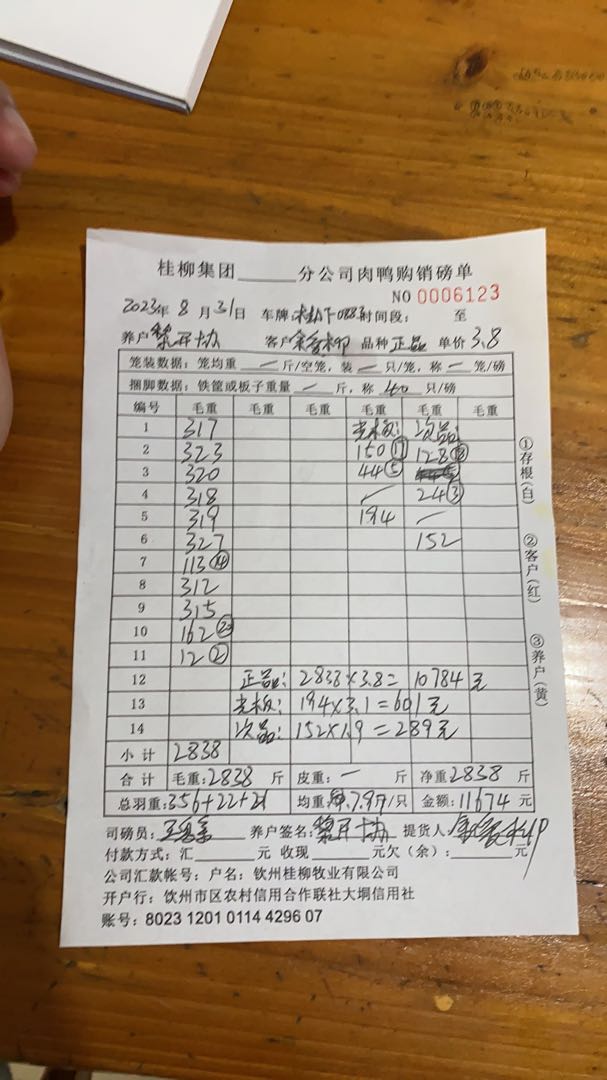 桂柳集团______分公司肉鸭购销磅单
NO 0006123
2023年 8 月 31日 车牌: 时间段: 至
养户 黎开协 客户 品种 正品 单价 3.8
笼装数据: 笼均重 — 斤/空笼, 装 — 只/笼, 称 — 笼/磅
捆脚数据: 铁筐或板子重量 — 斤, 称 40 只/磅
编号 毛重 毛重 毛重 毛重 毛重 毛重
1 317 光板: 次品:
2 323 150⑰ 128⑱
3 320 44⑤
4 318 — 24③
5 319 194 —
6 327 152
7 113⑭
8 312
9 315
10 162
11 12②
12 正品: 2838×3.8= 10784元
13 光板: 194×3.1=601元
14 次品: 152×1.9=289元
小计 2838
合计 毛重:2838 斤 皮重: — 斤 净重 2838 斤
总羽重:356+22+21 均重 7.97斤/只 金额: 11674 元
司磅员: 养户签名: 黎开协 提货人:
付款方式: 汇______元 收现______元欠(余):______元
公司汇款帐号: 户名: 钦州桂柳牧业有限公司
开户行: 钦州市区农村信用合作联社大垌信用社
账号: 8023 1201 0114 4296 07
①存根(白)
②客户(红)
③养户(黄)